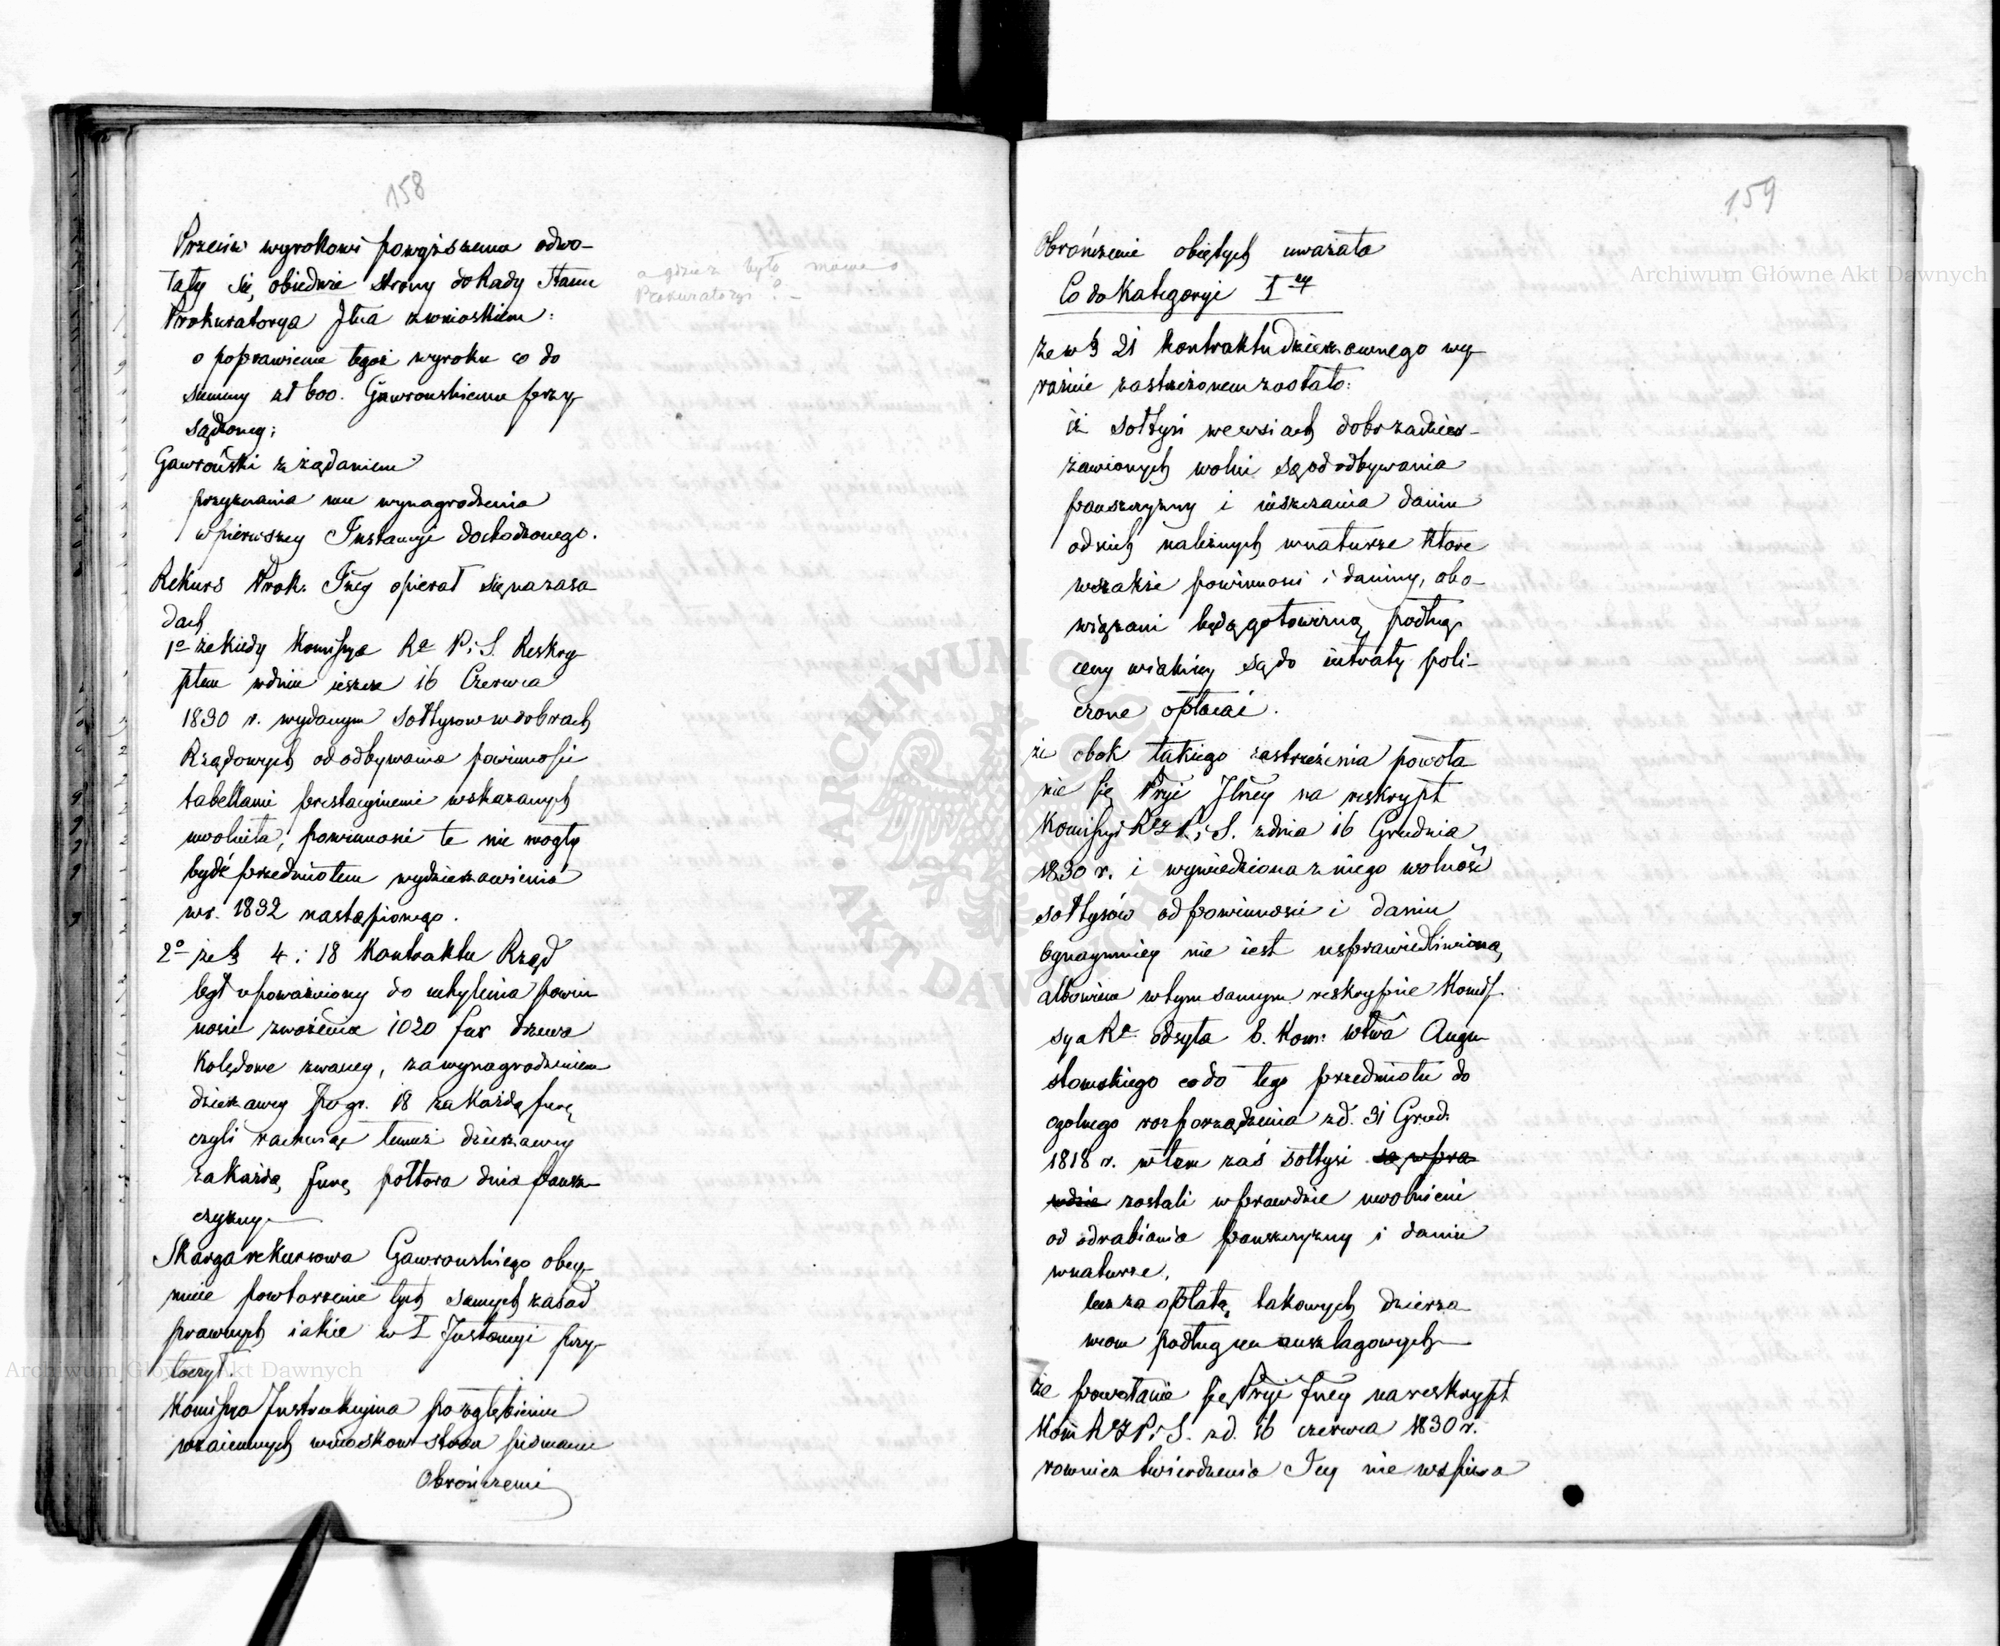 158
Przeciw wyrokowi powyższemu odwo-
łały się, obiedwie strony do Rady Stanu
Prokuratorya Jlna z wnioskiem:
o poprawienie tegoż wyroku co do
summy zł 600. Gawrońskiemu przy-
sądzoney;
Gawroński z żądaniem
przyznania mu wynagrodzenia
w pierwszey Instancyi dochodzonego.
a gdzież było mowa o
Prokuratoryi? –
Rekurs Prok. Jney opierał się na zasa
dach
1o że kiedy Kommissya Ra P. i S. Reskry-
ptem w dniu ieszcze 16 Czerwca
1830 r. wydanym sołtysow w dobrach
Rządowych od odbywania powinności
tabellami prestacyinemi wskazanych
uwolniła, powinności te nie mogły
bydź przedmiotem wydzierżawienia
w r. 1832 nastąpionego.
2o że § 4 i 18 Kontraktu Rząd
był upoważniony do uchylenia powin
ności zwożenia 1020 fur drzewa
Kolędowe zwaney, za wynagrodzeniem
dzierżawcy po gr. 18 za każdą furę
czyli rachuiąc temuż dzierżawcy
za każdą furę półtora dnia pańsz-
czyzny. –
Skarga rekursowa Gawrońskiego obey-
muie powtorzenie tych samych zasad
prawnych iakie w I Instancyi przy-
toczył.
Kommissya Instrukcyina po zgłębieniu
wzaiemnych wniosków stron pismami
Obrończemi
159
Obrończemi obiętych uważała
Co do Kategoryi Iey
że w § 21 Kontraktu dzierżawnego wy-
raźnie zastrzeżonem zostało:
iż sołtysi we wsiach dobr zadzier-
żawionych wolni są od odbywania
pańszczyzny i uiszczania danin
od nich należnych w naturze które
wszakże powinności i daniny, obo-
wiązani będą gotowizną podług
ceny w iakiey są do intraty poli-
czone opłacać.
że obok takiego zastrzeżenia powoła
nie się Pryi Jlney na reskrypt
Kommissyi Rzz P. i S. z dnia 16 Grudnia
1830 r. i wywiedziona z niego wolność
sołtysów od powinności i danin
bynaymniey nie iest usprawiedliwioną,
albowiem w tym samym reskrypcie Kommis-
sya Ra odsyła b. Kom: Wtwa Augu-
stowskiego co do tego przedmiotu do
ogolnego rozporządzenia z d. 31 Grud.
1818 r. w tem zaś sołtysi są wpra
wdzie zostali wprawdzie uwolnieni
od odrabiania pańszczyzny i danin
w naturze,
lecz za opłatą takowych dzierża
wcom podług cen anszlagowych –
że powołanie się Pryi Jney na reskrypt
Kom Rzz P. i S. z d. 16 czerwca 1830 r.
rownież twierdzenia Jey nie wspiera
Archiwum Główne Akt Dawnych
Archiwum Główne Akt Dawnych